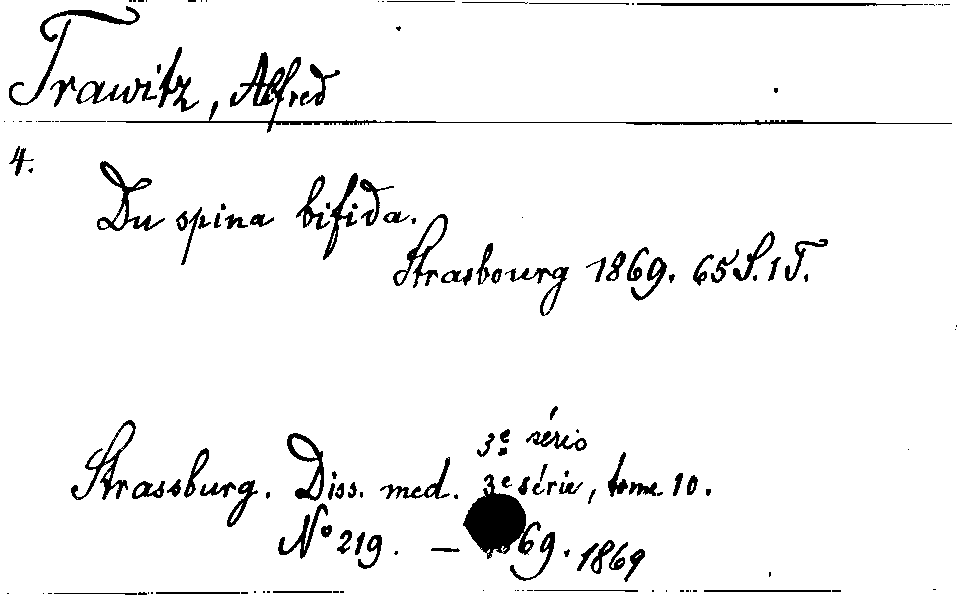 Trawitz, Alfred
4.
Du spina bifida.
Strasbourg 1869. 65 S. 1 T.
3e série
Strassburg. Diss. med. 3e série, tome 10.
No 219. — 1869. 1869